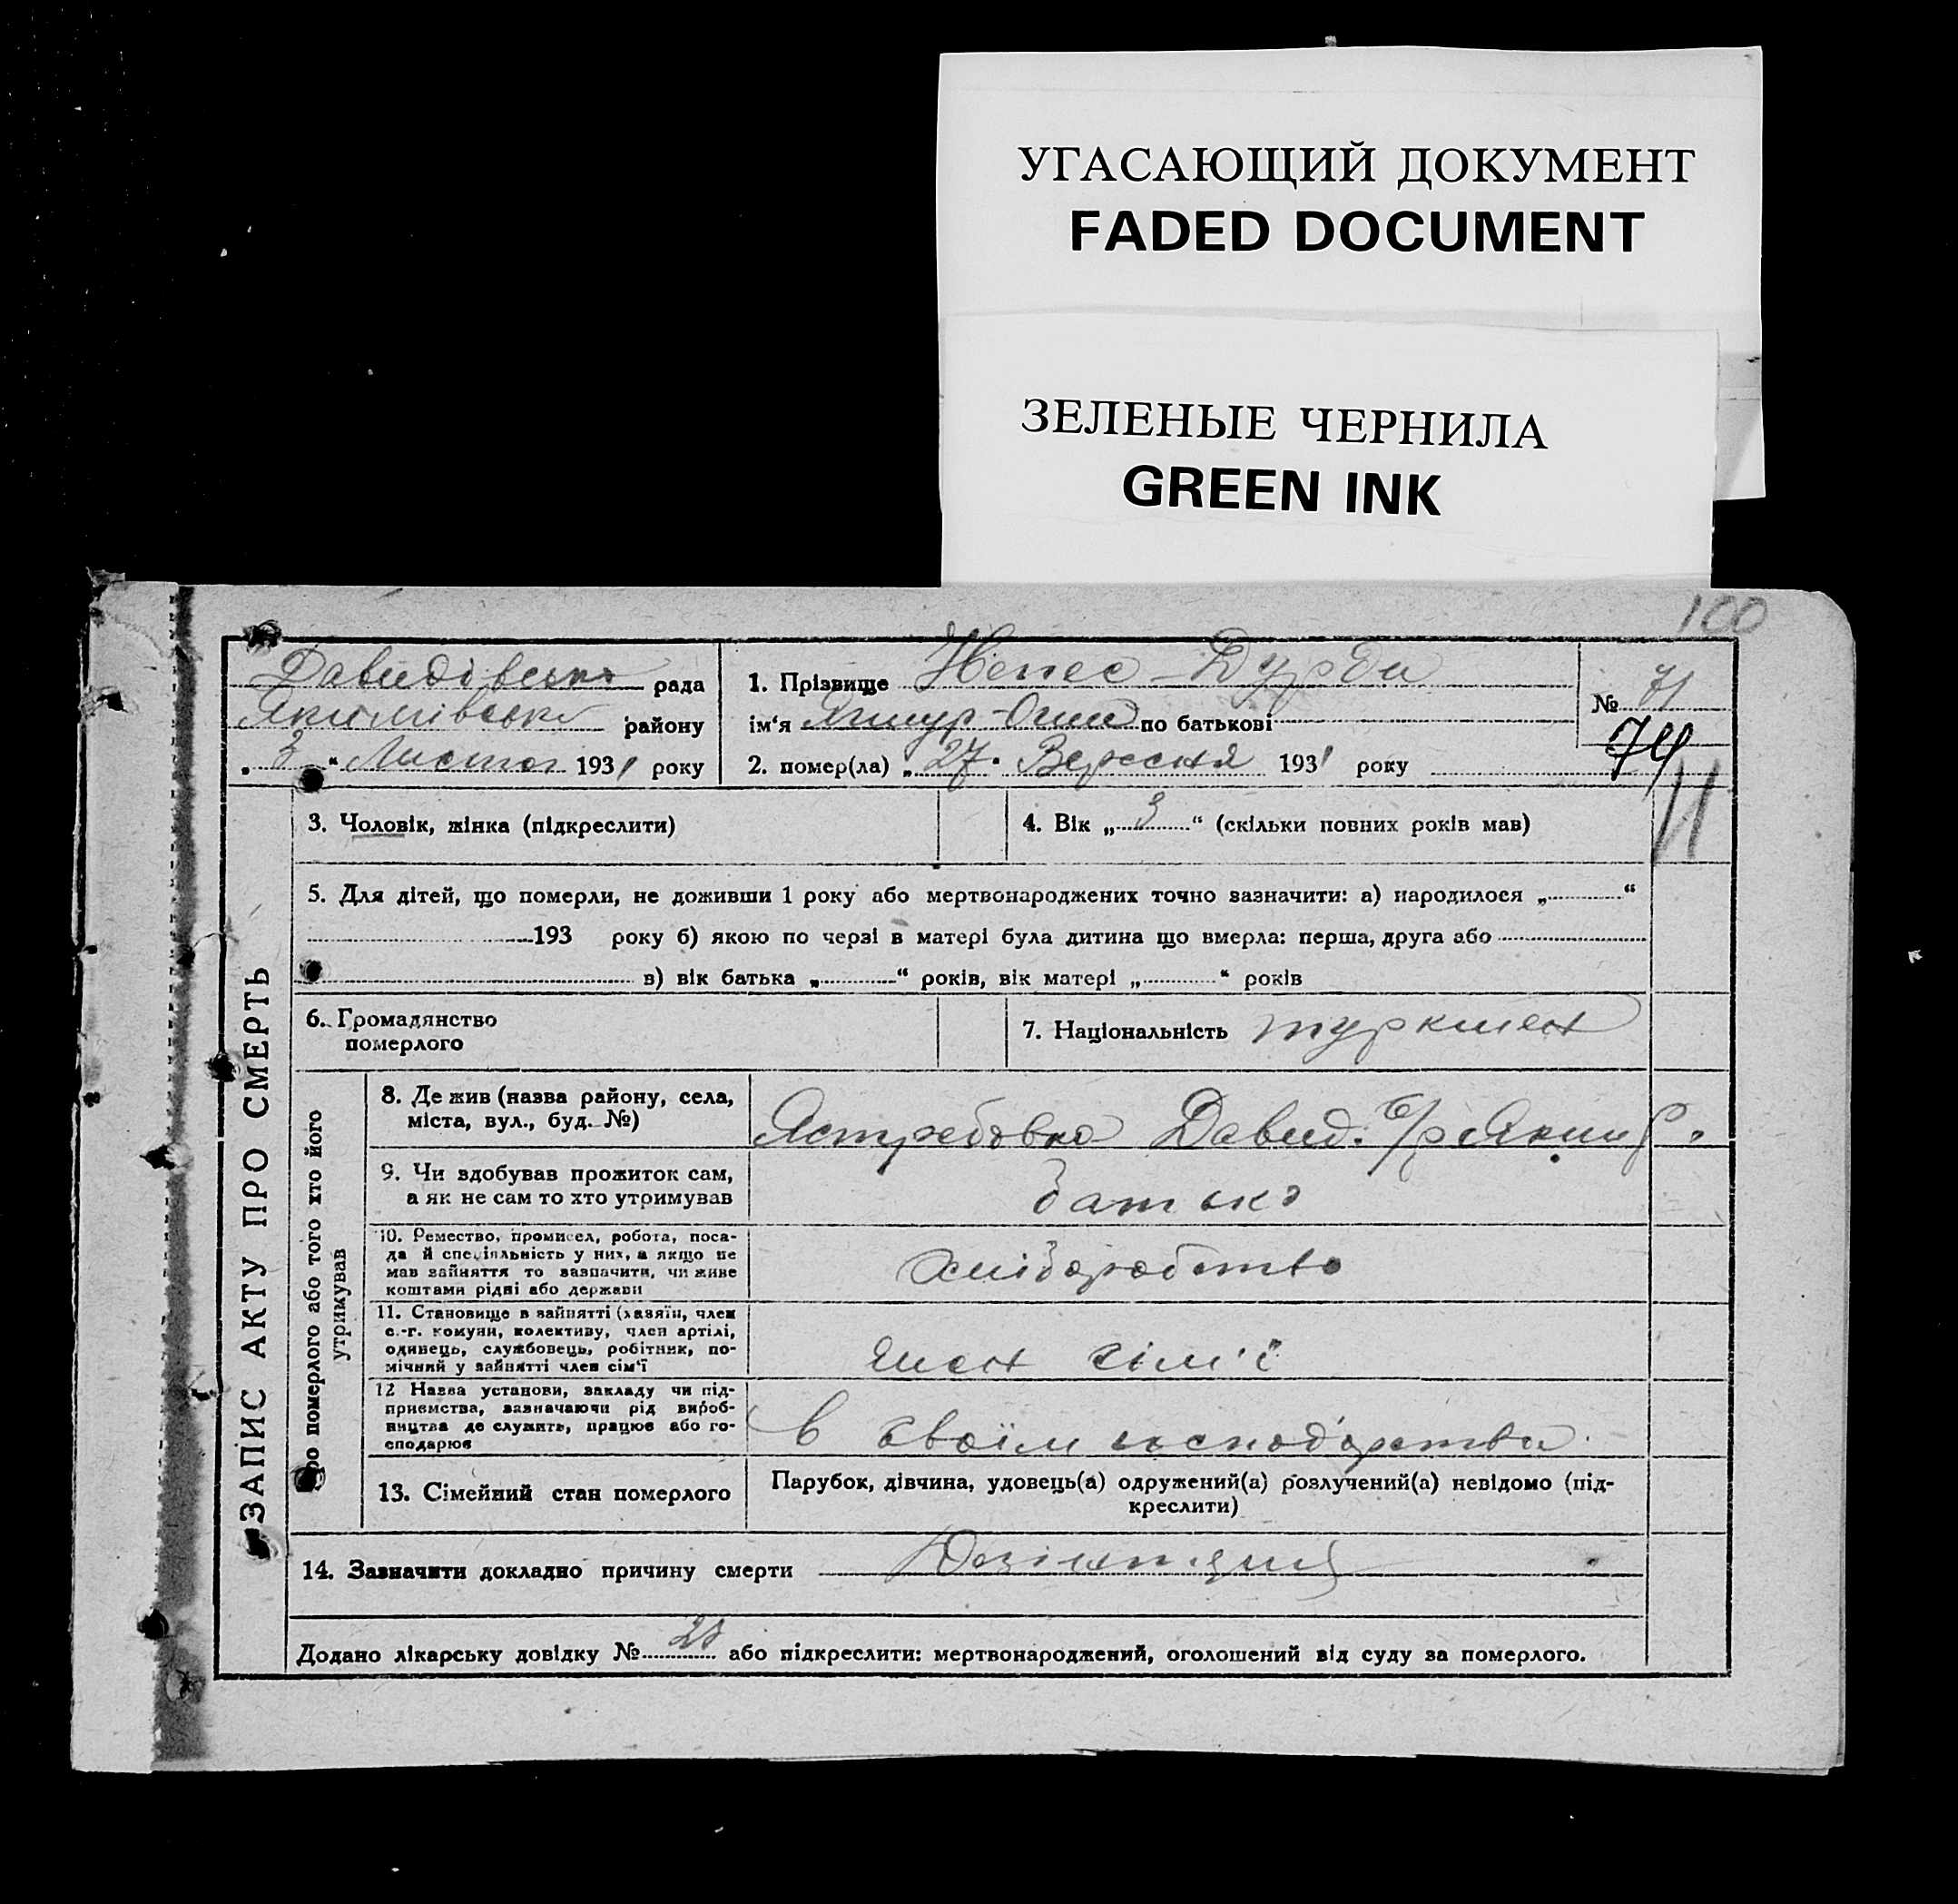 УГАСАЮЩИЙ ДОКУМЕНТ
FADED DOCUMENT
ЗЕЛЕНЫЕ ЧЕРНИЛА
GREEN INK
100
Давидівська рада
Якимівськ району
„ 3 “ Листоп 1931 року
1. Прізвище Непес-Дурди
ім‘я по батькові
2. помер(ла) „ 27. Вересня 1931 року
№ 71
74
11
ЗАПИС АКТУ ПРО СМЕРТЬ
3. Чоловік, жінка (підкреслити)
4. Вік „ 3 “ (скільки повних років мав)
5. Для дітей, що померли, не доживши 1 року або мертвонароджених точно зазначити: а) народилося „ “
193 року б) якою по черзі в матері була дитина що вмерла: перша, друга або
в) вік батька „ “ років, вік матері „ “ років
6. Громадянство
померлого
7. Національність туркмен
Про померлого або того хто його
утримував
8. Де жив (назва району, села,
міста, вул., буд. №)
Ястребовка Давид. с/р Яким р.
9. Чи здобував прожиток сам,
а як не сам то хто утримував
батько
10. Ремество, промисел, робота, поса-
да й спеціяльність у них, а якщо не
мав зайняття то зазначити, чи живе
коштами рідні або держави
хліборобство
11. Становище в зайнятті (хазяїн, член
с.-г. комуни, колективу, член артілі,
одинець, службовець, робітник, по-
мічний у зайнятті член сім‘ї
член сім'ї
12 Назва установи, закладу чи під-
приємства, зазначаючи рід вироб-
ництва де служить, працює або го-
сподарює
в своїм господарстви
13. Сімейний стан померлого
Парубок, дівчина, удовець(а) одружений(а) розлучений(а) невідомо (під-
креслити)
14. Зазначити докладно причину смерти
Додано лікарську довідку № або підкреслити: мертвонароджений, оголошений від суду за померлого.